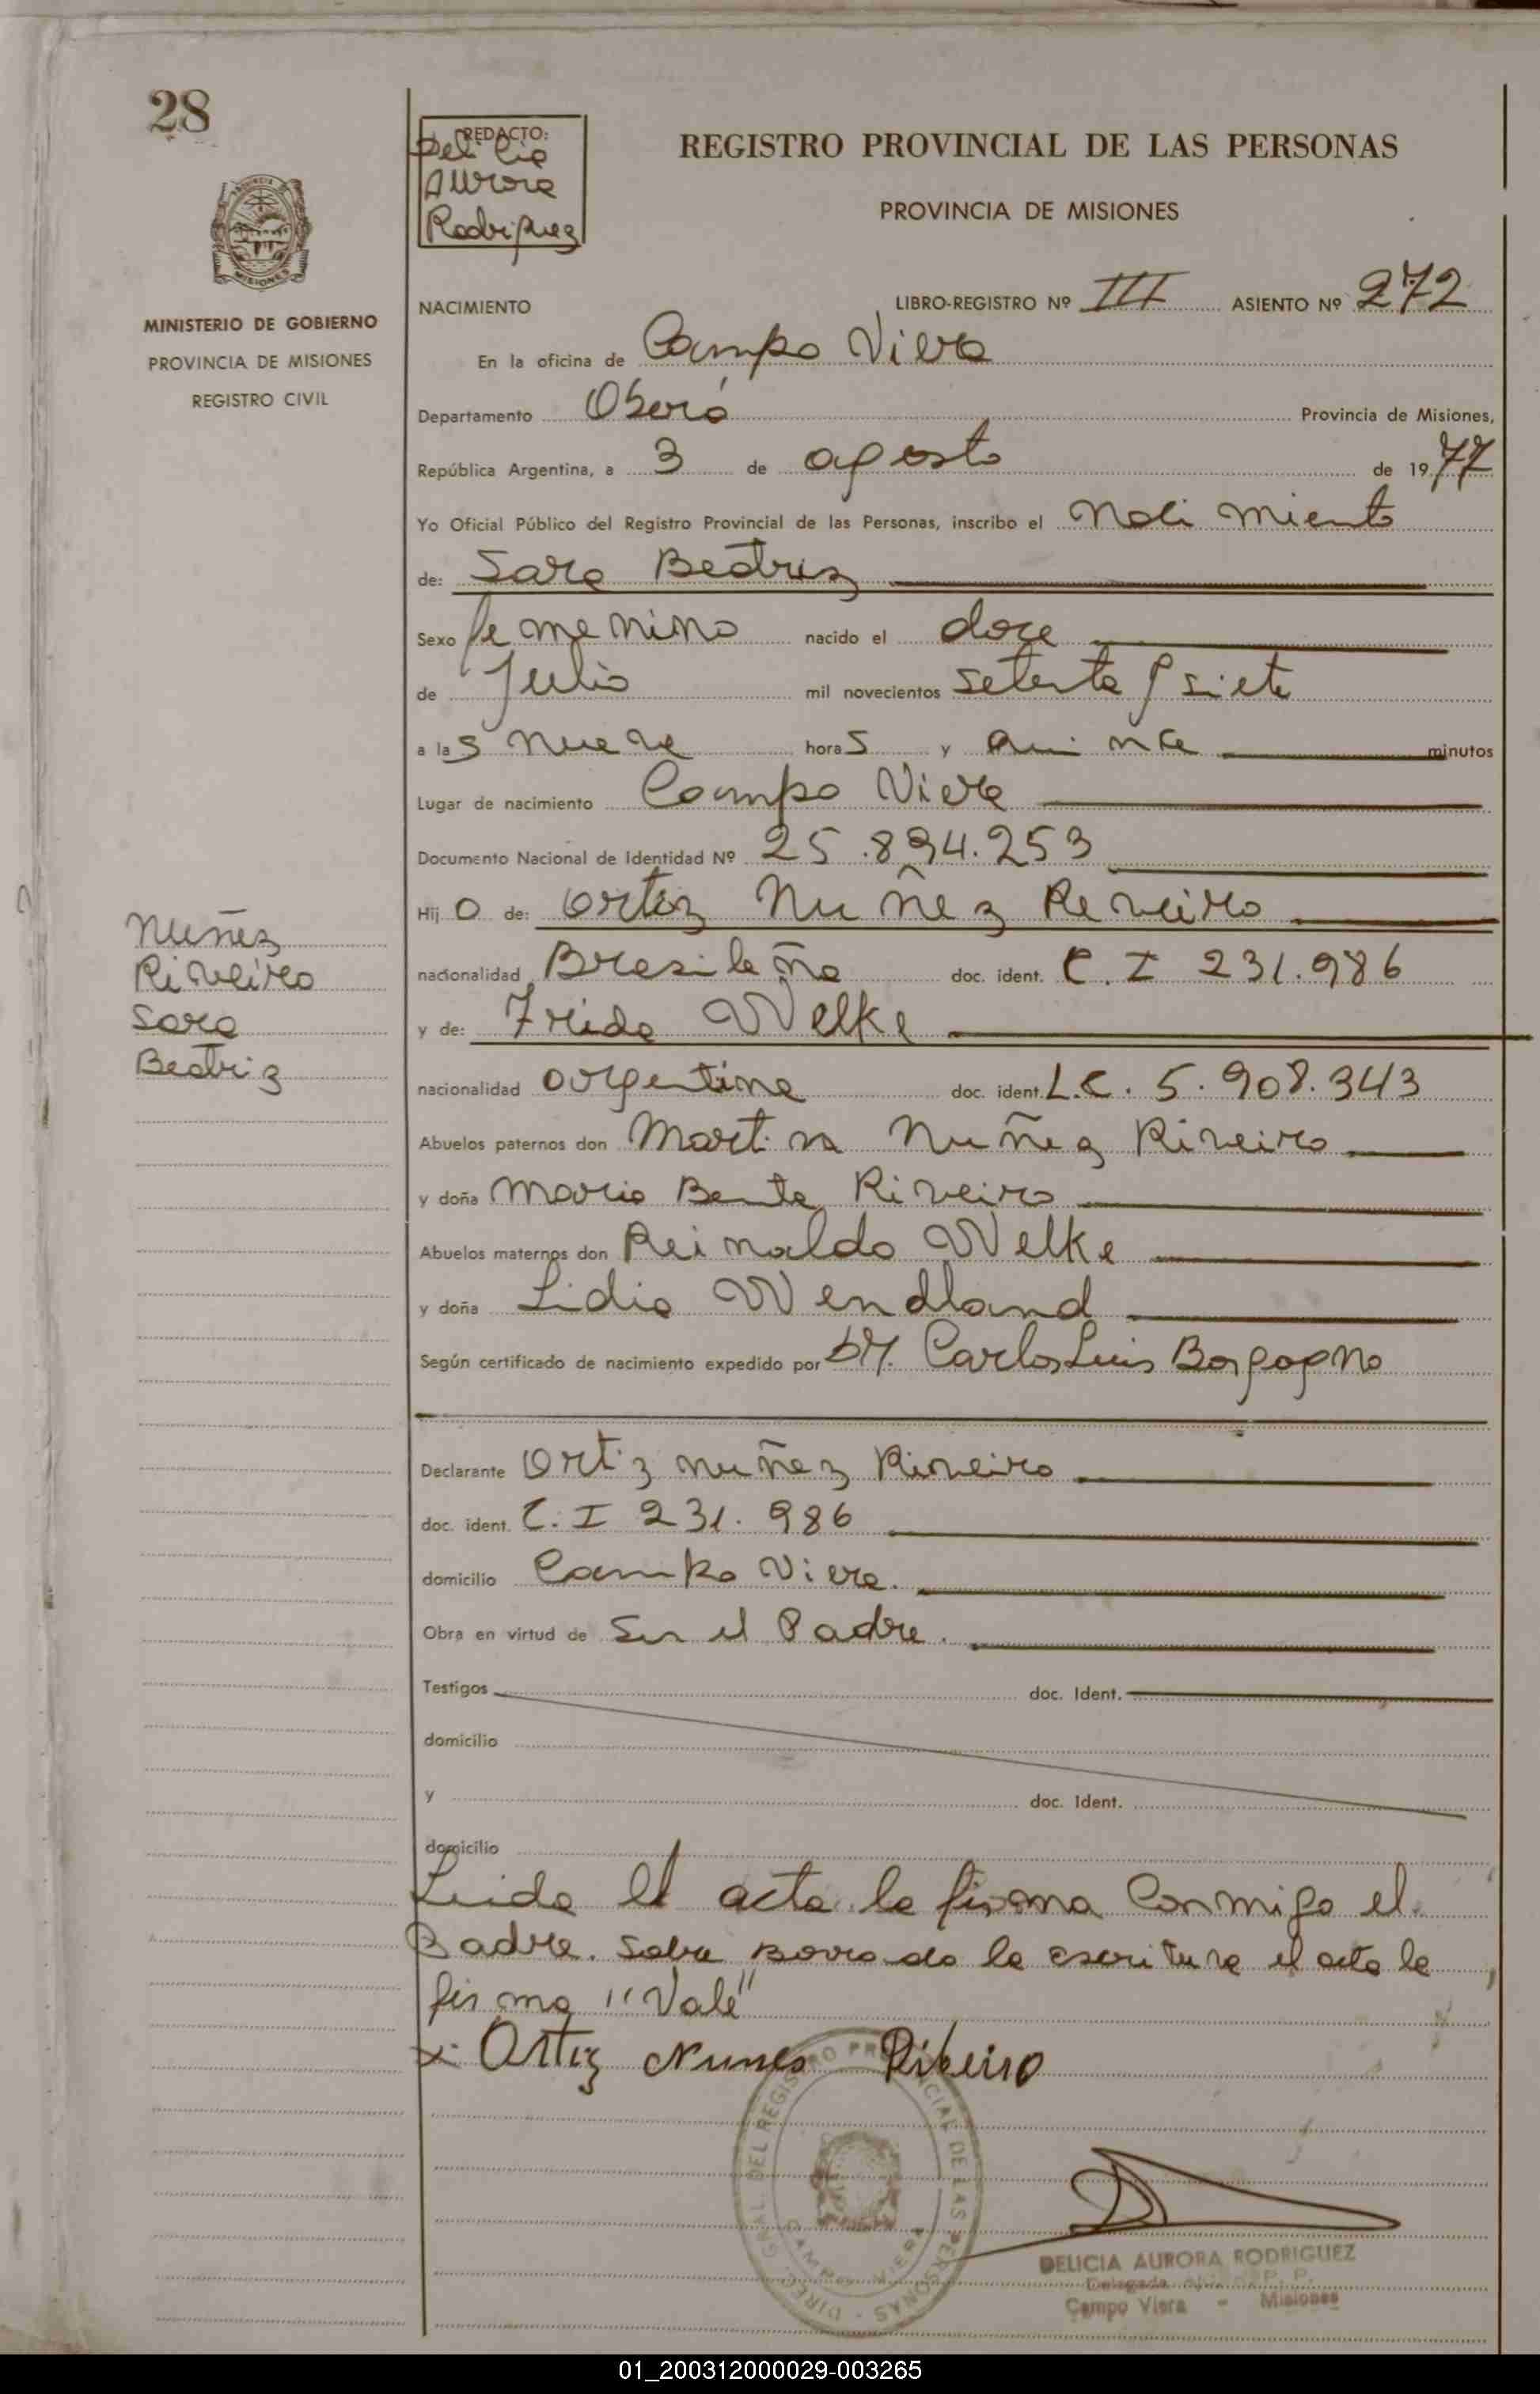 28
REDACTO:
Delicia
Aurora
Rodriguez
REGISTRO PROVINCIAL DE LAS PERSONAS
PROVINCIA DE MISIONES
MISIONES
MINISTERIO DE GOBIERNO
PROVINCIA DE MISIONES
REGISTRO CIVIL
NACIMIENTO LIBRO-REGISTRO Nº III ASIENTO Nº 272
En la oficina de Campo Viera
Departamento Oberá Provincia de Misiones,
República Argentina, a 3 de agosto de 1977
Yo Oficial Público del Registro Provincial de las Personas, inscribo el Naci miento
de: Sara Beatriz
Sexo femenino nacido el doce
de Julio mil novecientos setenta y siete
a las nueve horas y quince minutos
Lugar de nacimiento Campo Viera
Documento Nacional de Identidad Nº 25.894.253
Hijo de: Ortiz Nuñez Reveiro
nacionalidad Brasileña doc. ident. C. I 231.986
y de: Frida Welke
nacionalidad argentina doc. ident. L.C. 5.908.343
Abuelos paternos don Martin Nuñez Riveiro
y doña Maria Benta Riveiro
Abuelos maternos don Reinaldo Welke
y doña Lidia Wendland
Según certificado de nacimiento expedido por Dr. Carlos Luis Borgogno
Nuñez
Riveiro
Sara
Beatriz
Declarante Ortiz Nuñez Riveiro
doc. ident. C. I 231.986
domicilio Campo Viera.
Obra en virtud de Ser el Padre.
Testigos doc. Ident.
domicilio
y doc. Ident.
domicilio
Leida el acta la firma Conmigo el
Padre. Sobre Borrado la escritura el acta la
firma "Vale"
x. Ortiz Nunes Ribeiro
DIREC. GRAL. DEL REGISTRO PROVINCIAL DE LAS PERSONAS
CAMPO VIERA
DELICIA AURORA RODRIGUEZ
Delegada P. P.
Campo Viera - Misiones
01_200312000029-003265